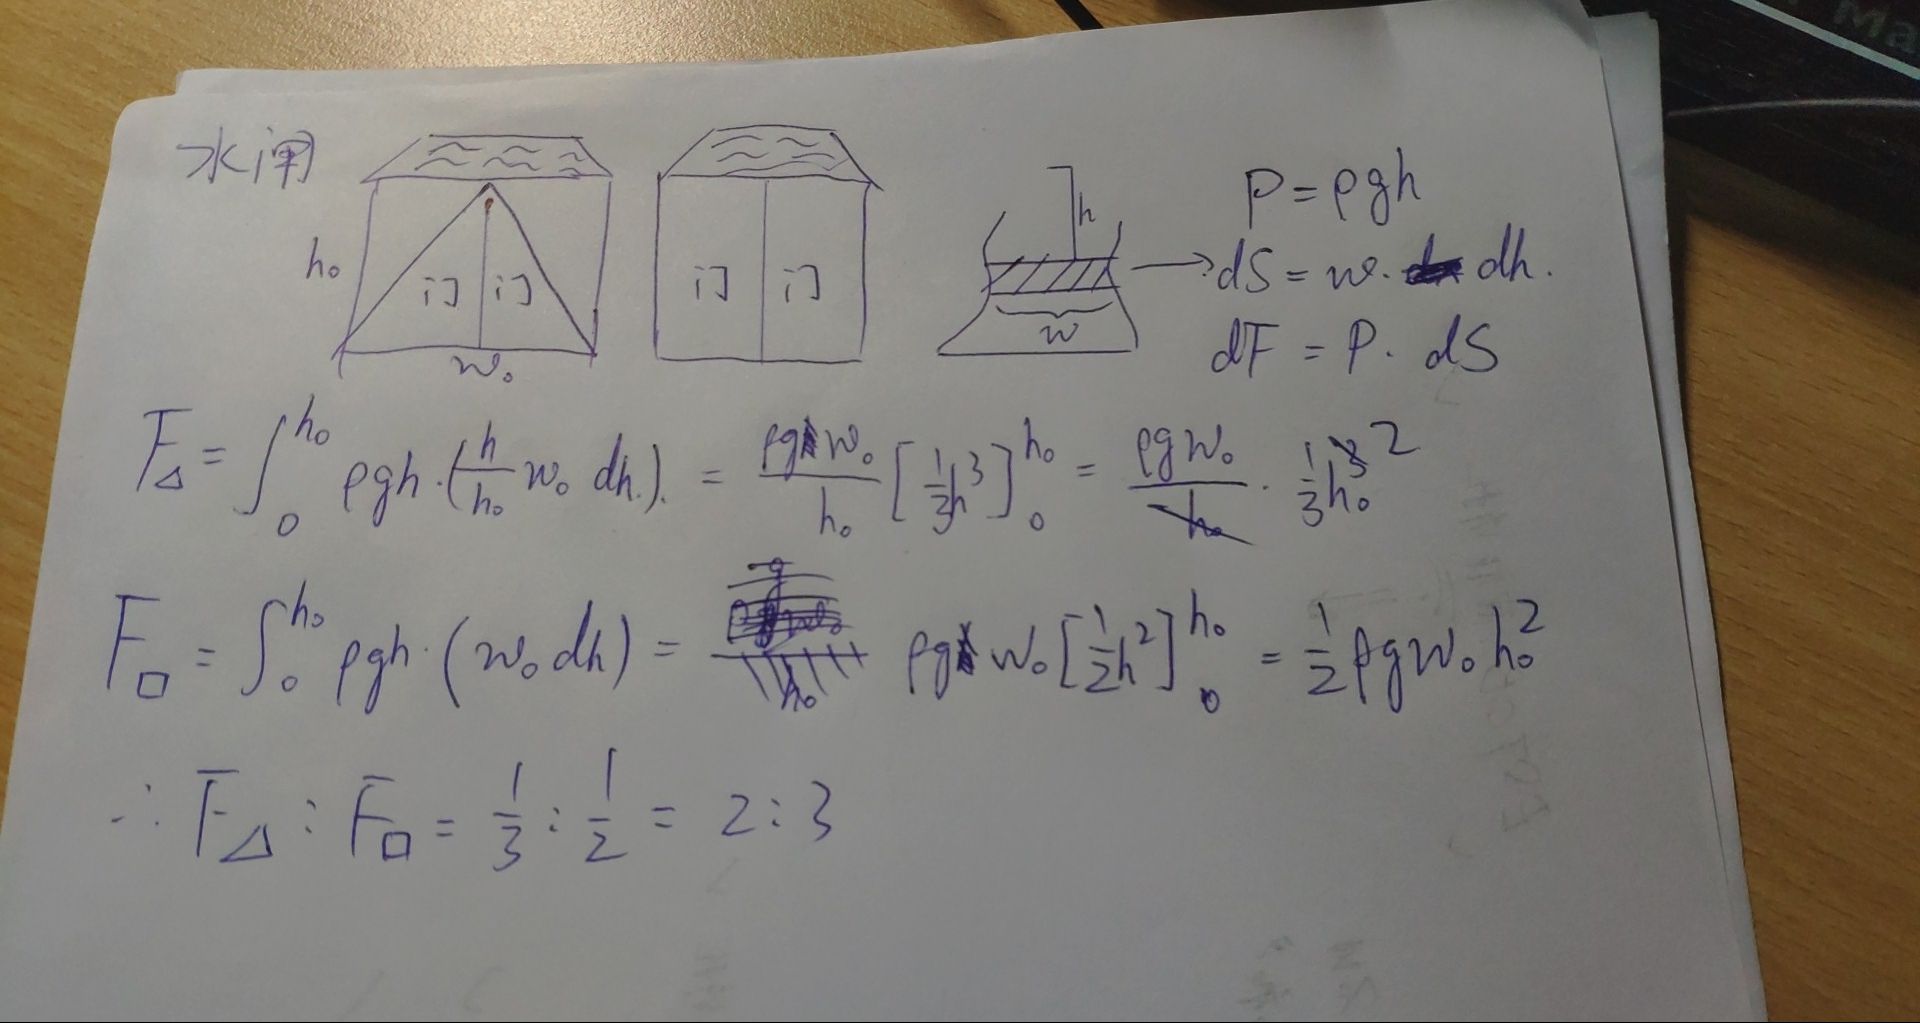 水闸
h₀
门 门
w₀
门 门
h
w
P = ρgh
dS = w · dh.
dF = P · dS
F△ = ∫₀^h₀ ρgh · (h/h₀ w₀ dh). = ρgw₀/h₀ [1/3 h³]₀^h₀ = ρgw₀/h₀ · 1/3 h₀²
F□ = ∫₀^h₀ ρgh · (w₀ dh) = ρg w₀ [1/2 h²]₀^h₀ = 1/2 ρg w₀ h₀²
∴ F△ : F□ = 1/3 : 1/2 = 2 : 3
Ma